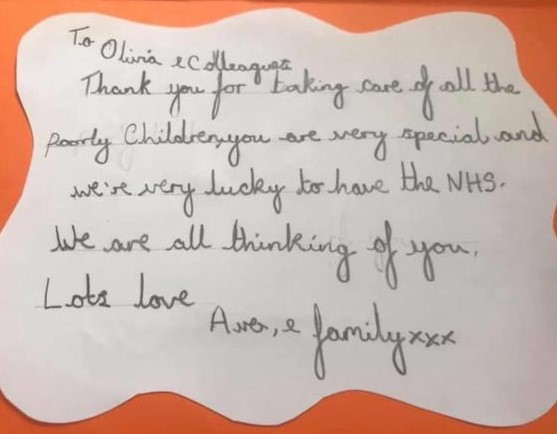 To Olivia & Colleagues
Thank you for taking care of all the
Poorly Children, you are very special and
we're very lucky to have the NHS.
We are all thinking of you.
Lots love
& family xxx